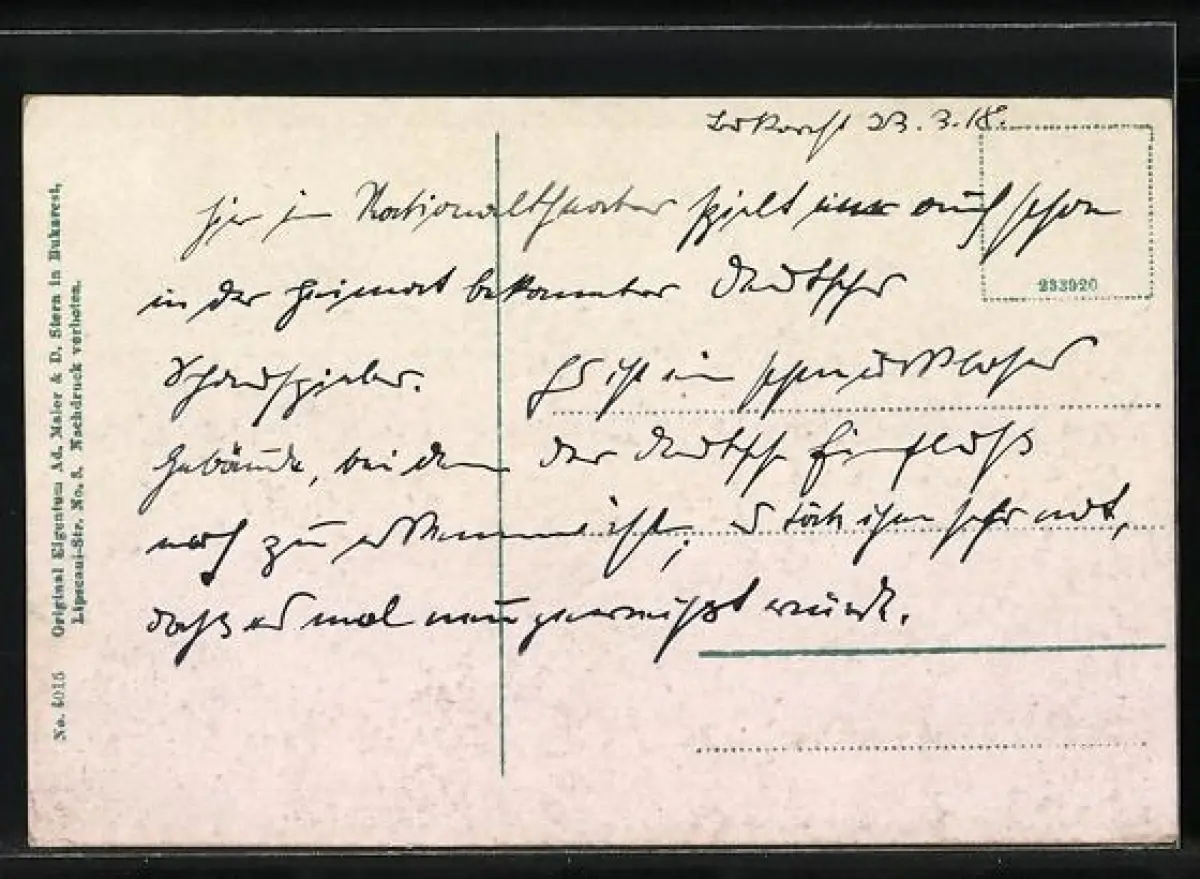 Bukarest 23.3.18.
Hier im Nationaltheater spielt nur auch schon
in der Heimat bekannter deutscher
Schauspieler. Es ist ein schmuckloses
Gebäude, bei dem der deutsche Einfluß
noch zu erkennen ist; es täte ihm sehr not,
daß es mal neu geweißt würde.
233920
No. 5015 Original Eigentum Ad. Maier & D. Stern in Bukarest,
Lipscani-Str. No. 8. Nachdruck verboten.